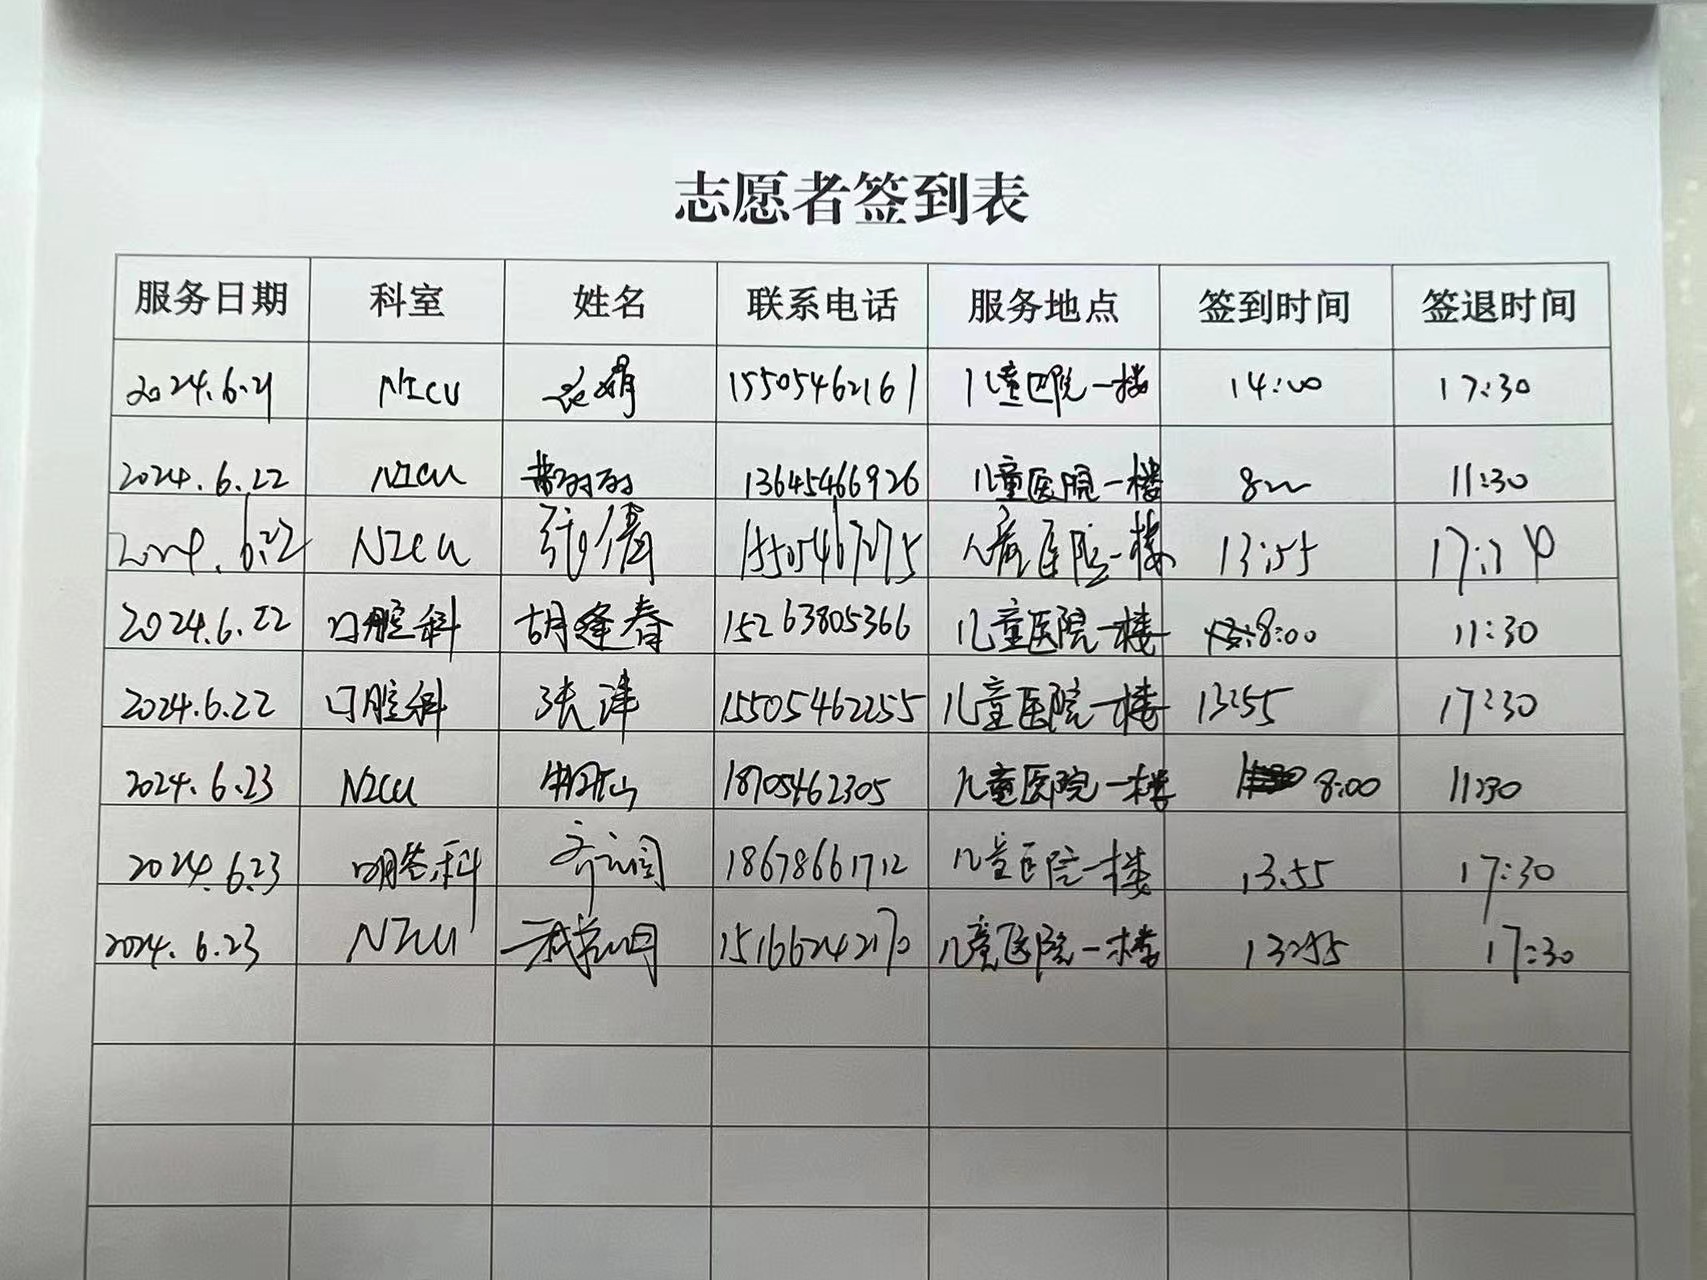 志愿者签到表
服务日期 科室 姓名 联系电话 服务地点 签到时间 签退时间
2024.6.21 NICU 娟 15505462161 儿童医院一楼 14:00 17:30
2024.6.22 NICU 13645466926 儿童医院一楼 8 11:30
2024.6.22 NICU 张倩 医院一楼 13:55
2024.6.22 口腔科 胡逢春 15263805366 儿童医院一楼 8:00 11:30
2024.6.22 口腔科 张津 15505462255 儿童医院一楼 13:55 17:30
2024.6.23 NICU 18705462305 儿童医院一楼 8:00 11:30
2024.6.23 科 18678661712 儿童医院一楼 13.55 17:30
2024.6.23 NICU 儿童医院一楼 13:55 17:30